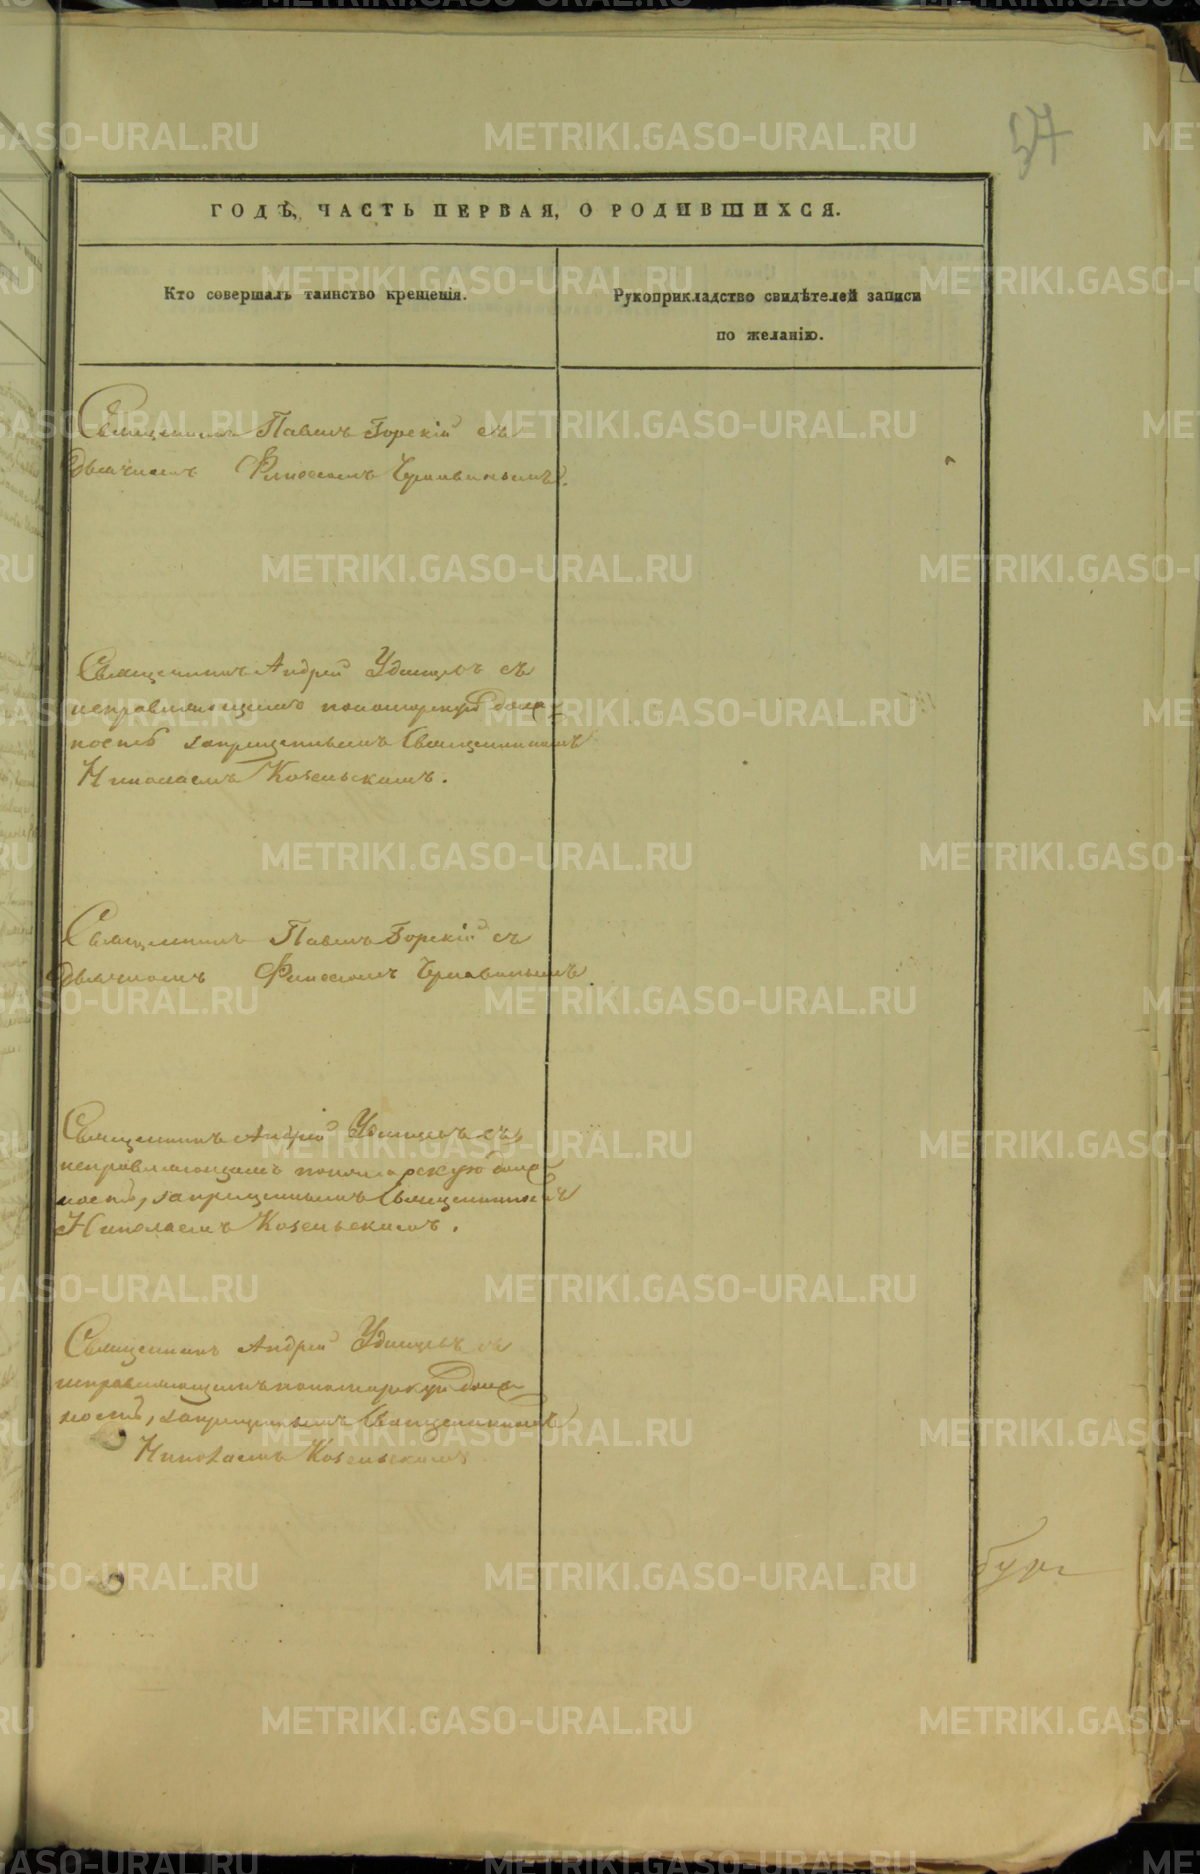 57
ГОДѢ, ЧАСТЬ ПЕРВАЯ, О РОДИВШИХСЯ.
Кто совершалъ таинство крещенія.
Рукоприкладство свидѣтелей записи
по желанію.
Священникъ Павелъ Горскій съ
Дьячкомъ
Священникъ Андрей Удинцевъ съ
исправляющимъ пономарскую долж
ность запрещеннымъ Священникомъ
Николаемъ Козельскимъ.
Священникъ Павелъ Горскій съ
Дьячкомъ
Священникъ Андрей Удинцевъ съ
исправляющимъ пономарскую долж
ность, запрещеннымъ Священникомъ
Николаемъ Козельскимъ.
Священникъ Андрей Удинцевъ съ
исправляющимъ пономарскую долж
ность, запрещеннымъ Священникомъ
Николаемъ Козельскимъ
METRIKI.GASO-URAL.RU